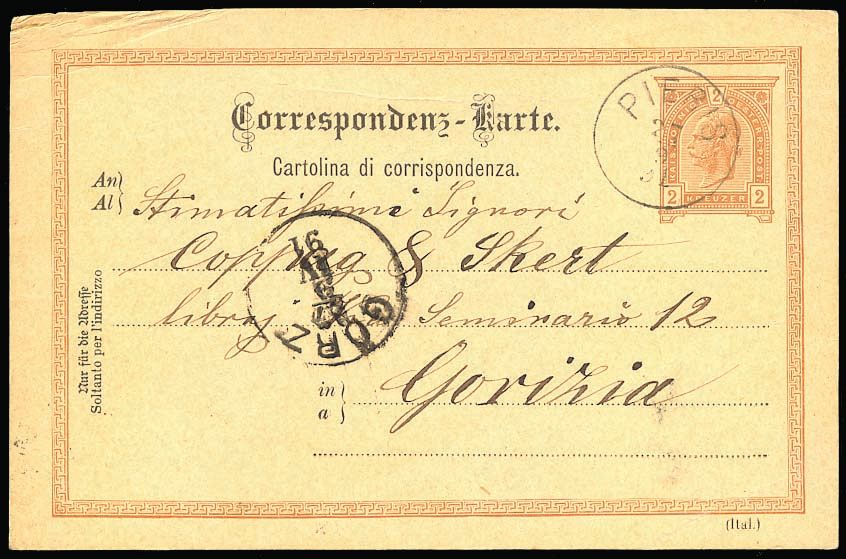 Correspondenz-Karte.
Cartolina di corrispondenza.
KREUZER
2 2 2
An
Al
Stimatissimi Signori
& Skert
Seminario 12
in
a
Gorizia
Nur für die Adresse
Soltanto per l'indirizzo
GÖRZ
91
(Ital.)